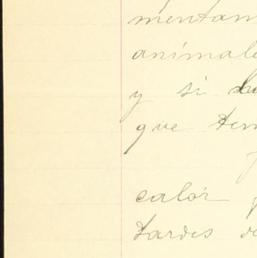 mentam
animale
y si
que ten
calor
tardes de